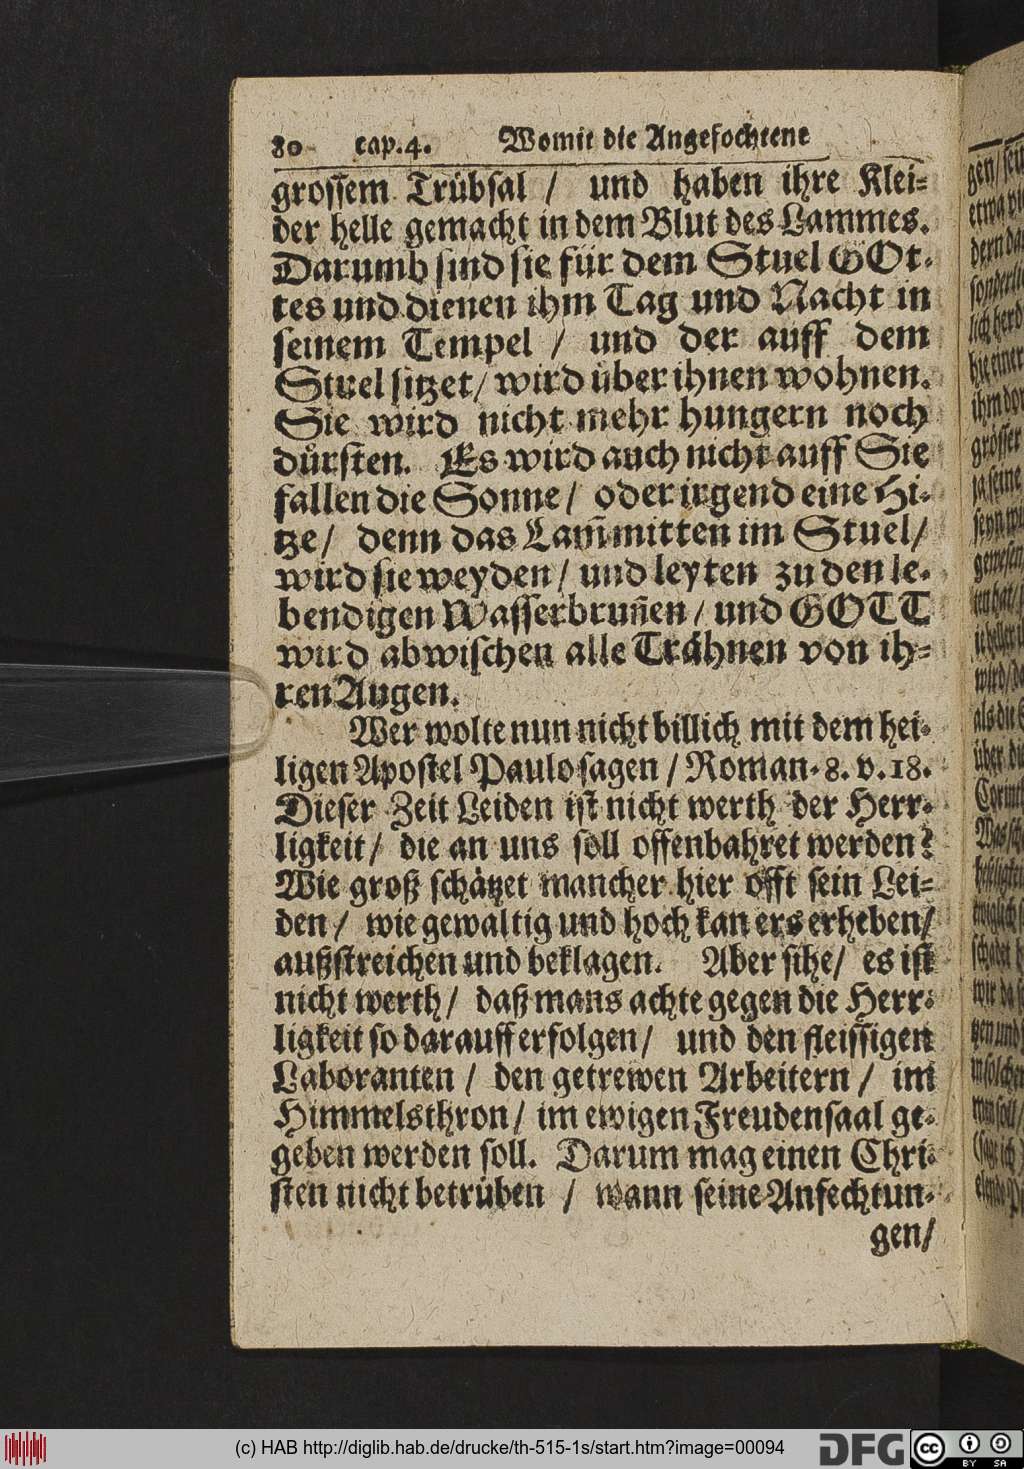 80 cap. 4. Womit die Angefochtene
grossem Trübsal / und haben ihre Klei-
der helle gemacht in dem Blut des Lammes.
Darumb sind sie für dem Stuel GOt-
tes und dienen ihm Tag und Nacht in
seinem Tempel / und der auff dem
Stuel sitzet / wird über ihnen wohnen.
Sie wird nicht mehr hungern noch
dürsten. Es wird auch nicht auff Sie
fallen die Sonne / oder irgend eine Hi-
tze / denn das Lam̃ mitten im Stuel /
wird sie weyden / und leyten zu den le-
bendigen Wasserbrun̄en / und GOTT
wird abwischen alle Trähnen von ih-
ren Augen.
Wer wolte nun nicht billich mit dem hei-
ligen Apostel Paulo sagen / Roman. 8. v. 18.
Dieser Zeit Leiden ist nicht werth der Herr-
ligkeit / die an uns soll offenbahret werden?
Wie groß schätzet mancher hier offt sein Lei-
den / wie gewaltig und hoch kan ers erheben /
außstreichen und beklagen. Aber sihe / es ist
nicht werth / daß mans achte gegen die Herr-
ligkeit so darauff erfolgen / und den fleissigen
Laboranten / den getrewen Arbeitern / im
Himmelsthron / im ewigen Freudensaal ge-
geben werden soll. Darum mag einen Chri-
sten nicht betrüben / wann seine Anfechtun-
gen /
(c) HAB http://diglib.hab.de/drucke/th-515-1s/start.htm?image=00094
DFG cc BY SA